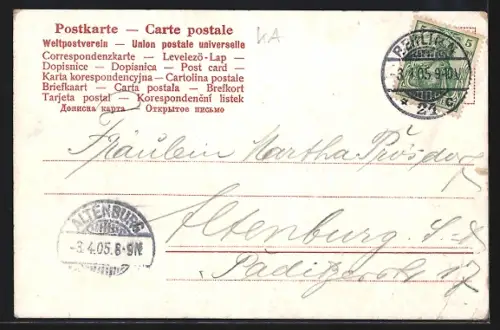 Postkarte — Carte postale
Weltpostverein — Union postale universelle
Correspondenzkarte — Levelező-Lap —
Dopisnice — Dopisnica — Post card —
Karta korespondencyjna — Cartolina postale
Briefkaart — Carta postala — Brefkort
Tarjeta postal — Korespondenční listek
Дописна карта — Открытое письмо
KA
5
BERLIN
-3.4.05.9-10V.
* 21 c
Fräulein Martha
ALTENBURG
-3.4.05.8-9N
Altenburg S.-A.
17